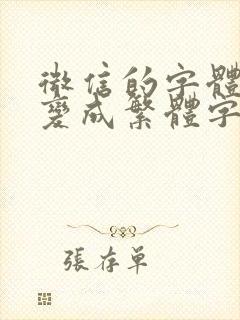 微信的字體
變成繁體字
張存單